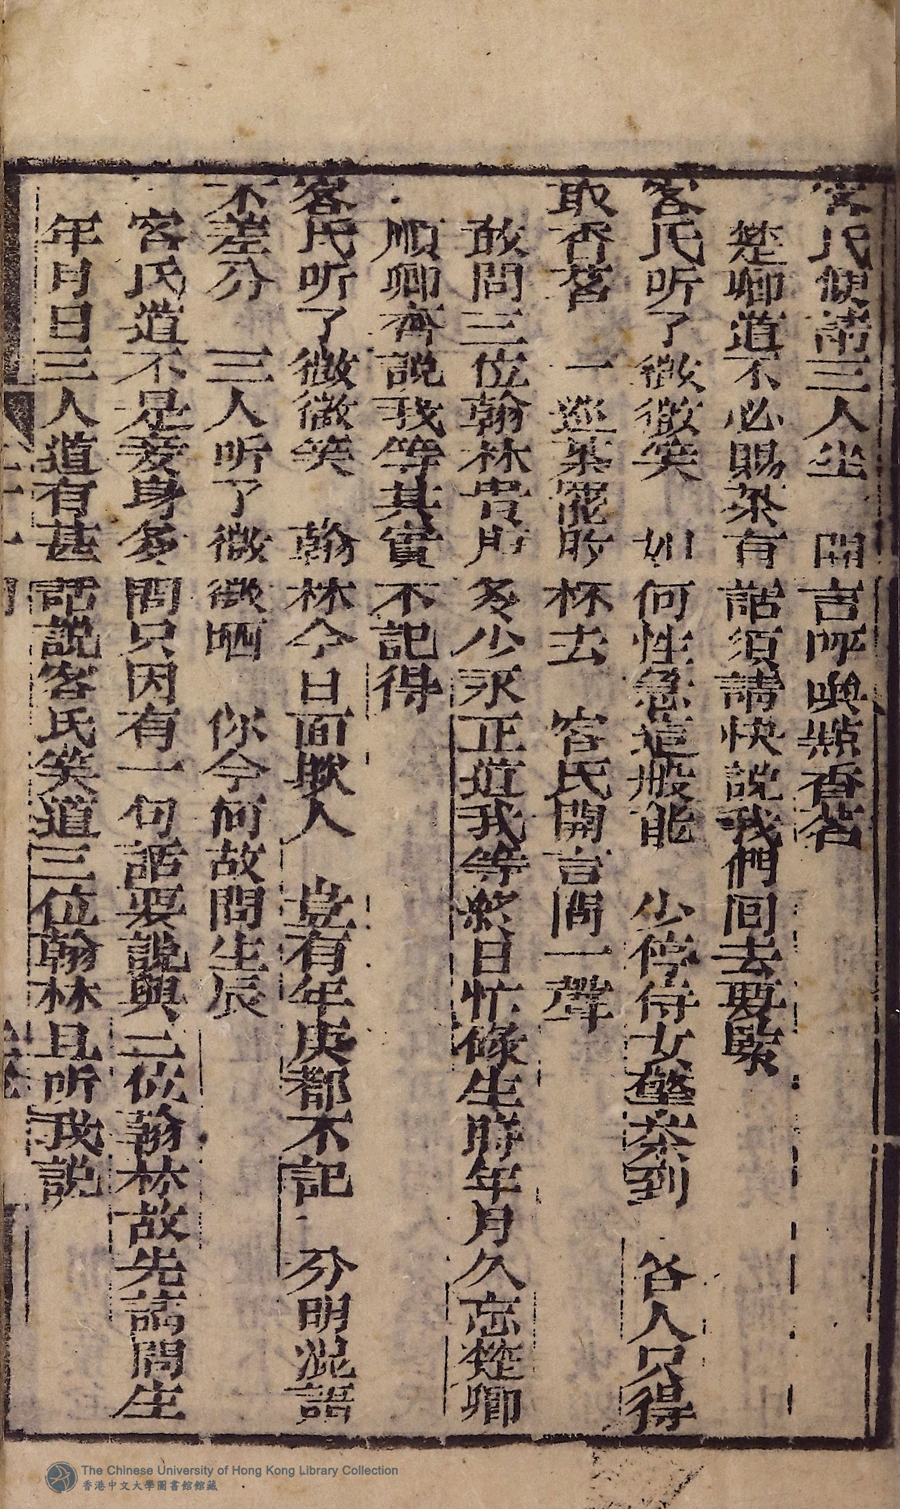 客氏便請三人坐　開言呼喚點香茗
楚卿道不必賜茶有話須請快說我們回去要緊
客氏听了微微笑　如何性急這般能　少停侍女擎茶到　各人只得
取香茗　一巡茶罷收杯去　容氏開言問一聲
敢問三位翰林貴庚多少永正道我等終日忙碌生時年月久忘楚卿
順卿齊說我等其實不記得
客氏听了微微笑　翰林今日面欺人　豈有年庚都不記　分明混語
不差分　三人听了微微哂　你今何故問生辰
客氏道不是妾身多問只因有一句話要說與三位翰林故先請問生
年月日三人道有甚話說客氏笑道三位翰林且听我說
The Chinese University of Hong Kong Library Collection
香港中文大學圖書館館藏